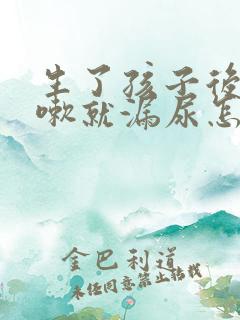 生了孩子後咳
嗽就漏尿怎
金巴利道
未经同意禁止转载